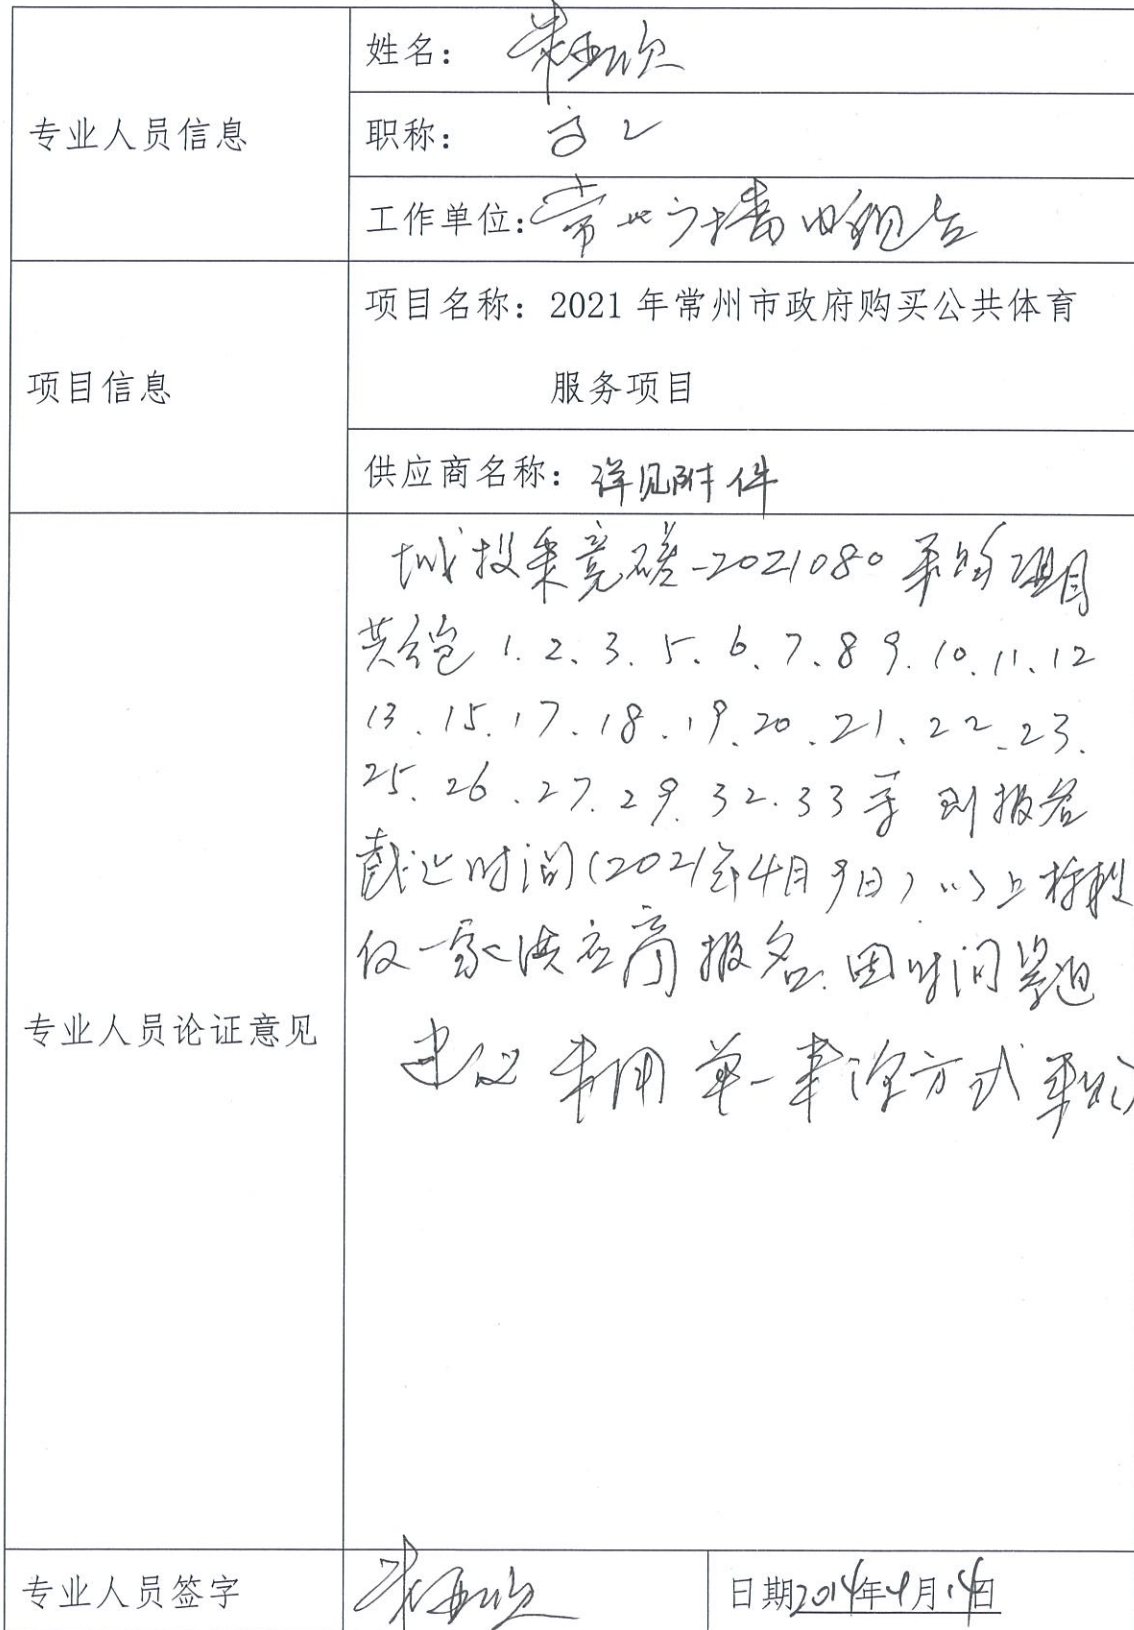 专业人员信息
姓名：
职称：高工
工作单位：常州广播电视台
项目信息
项目名称：2021 年常州市政府购买公共体育
服务项目
供应商名称：详见附件
专业人员论证意见
城投采竞磋-2021080 采购项目
共包 1.2、3、5、6、7、8 9、10、11、12
13、15、17、18、19、20、21、22、23、
25、26、27、29、32、33等 到报名
截止时间(2021年4月9日)以上标段
仅一家供应商报名.因时间紧迫
建议 采用 单一来源方式 采购
专业人员签字
日期 年4月14日